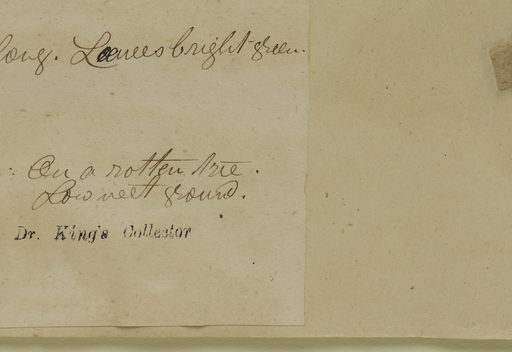 long. Leaves bright green.
On a rotten tree.
Low wet ground.
Dr. King's Collector